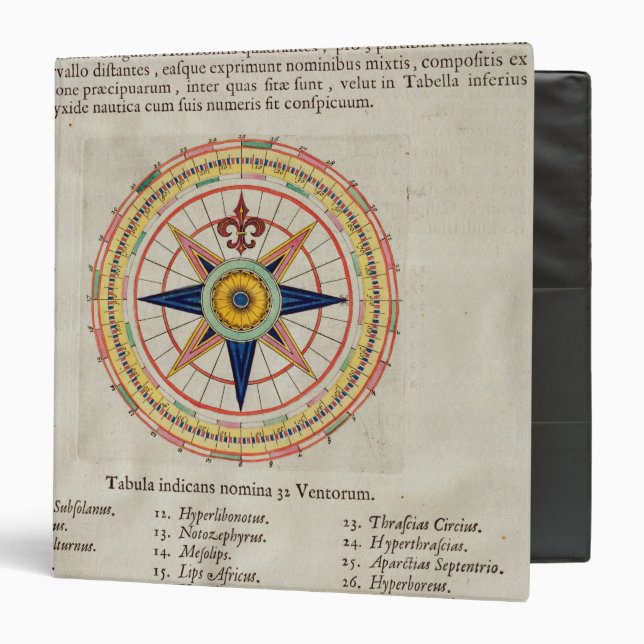 singulos Horizontis quadrantes, pro 3 partibus
rvallo diſtantes, eaſque exprimunt nominibus mixtis, compoſitis ex
one præcipuarum, inter quas ſitæ ſunt, velut in Tabella inferius
yxide nautica cum ſuis numeris fit conſpicuum.
Tabula indicans nomina 32 Ventorum.
Subſolanus. 12. Hyperlibonotus. 23. Thraſcias Circius.
us. 13. Notozephyrus. 24. Hyperthraſcias.
lturnus. 14. Meſolips. 25. Aparctias Septentrio.
15. Lips Africus. 26. Hyperboreus.